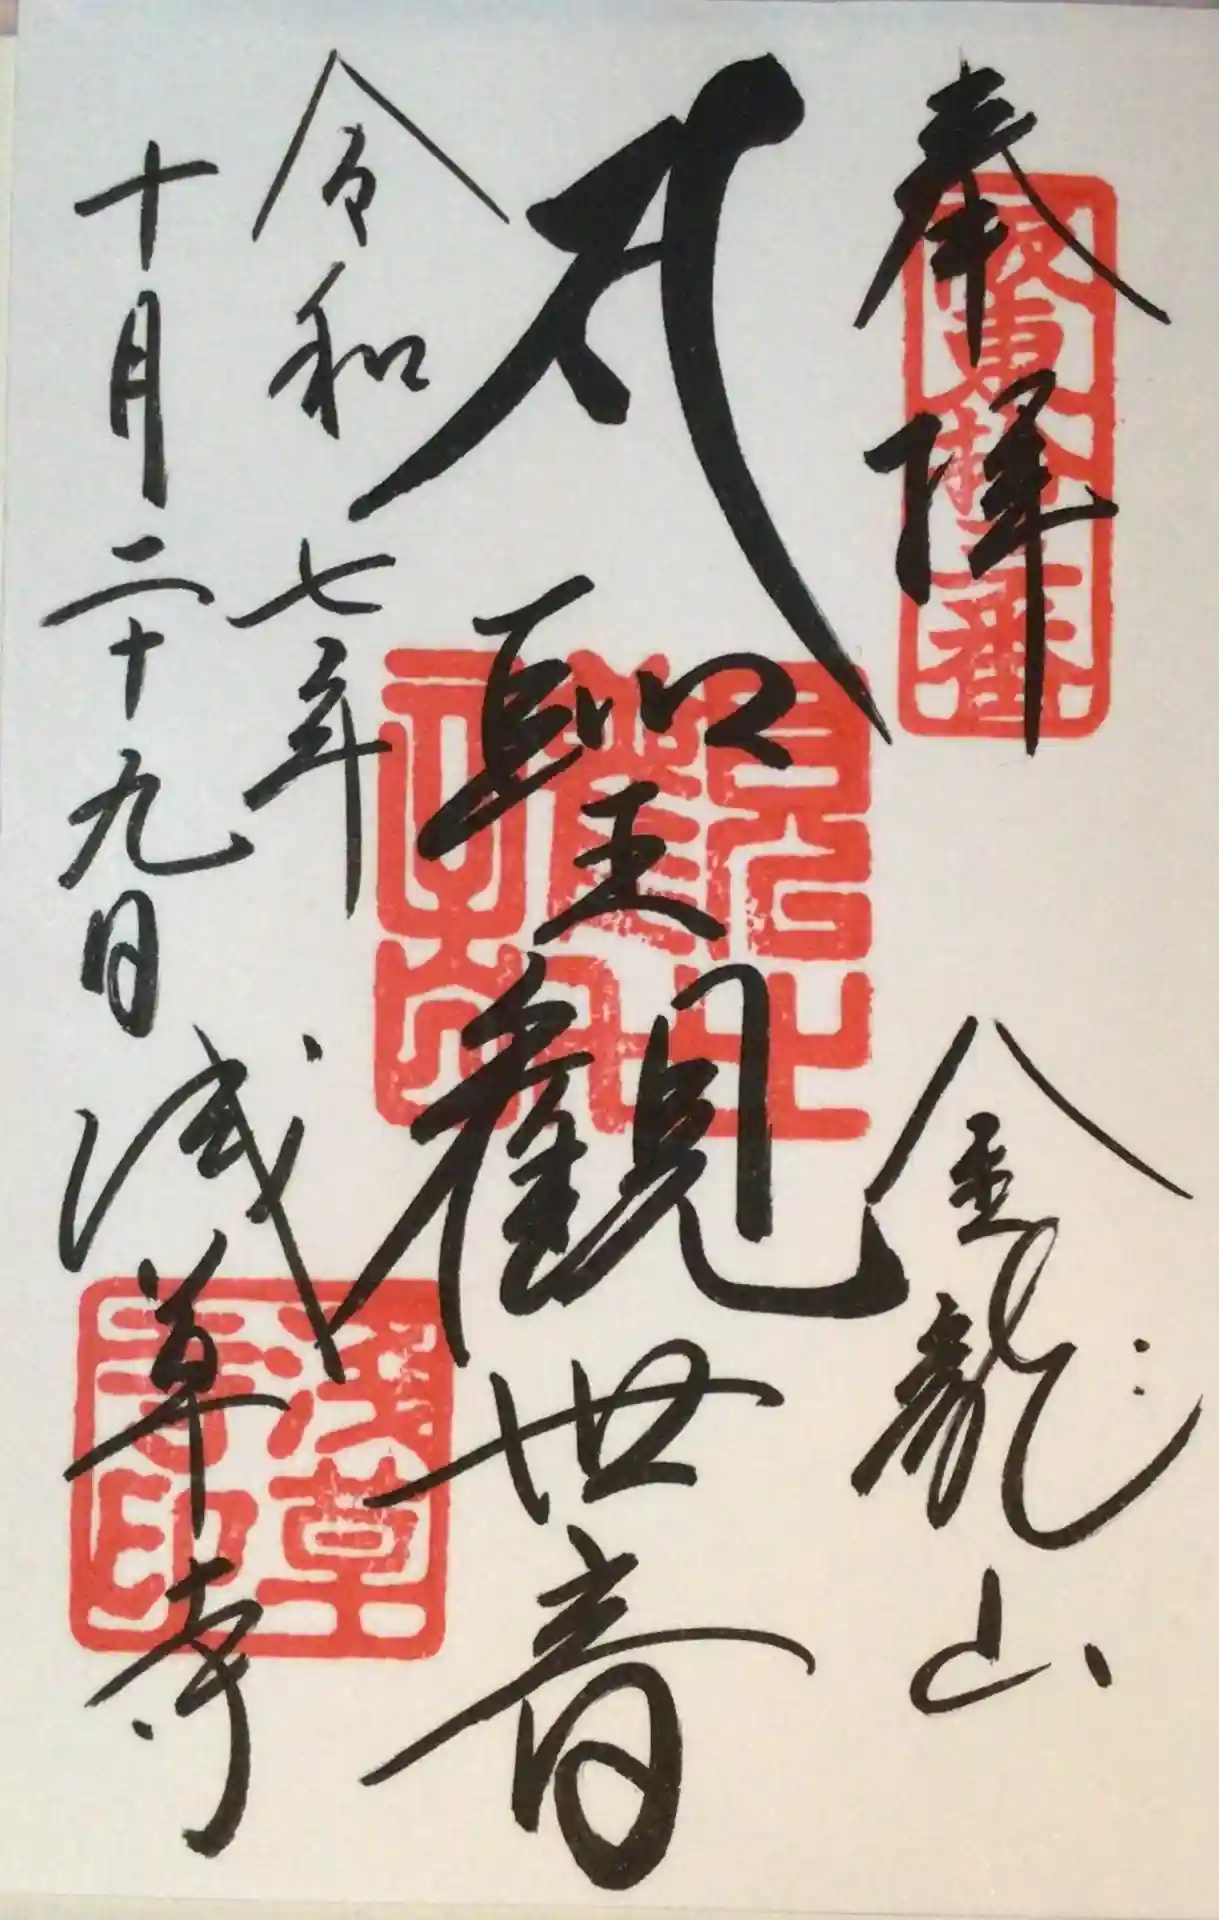 奉拝
金龍山
聖観世音
令和七年
十月二十九日
浅草寺
坂東拾三番
浅草寺印